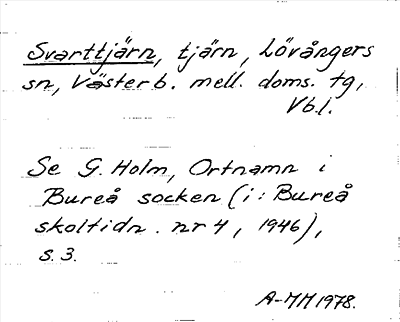 Svarttjärn, tjärn, Lövångers
sn, Västerb. mell. doms. tg,
Vb.l.
Se G. Holm, Ortnamn i
Bureå socken (i: Bureå
skoltidn. nr 4, 1946),
s. 3.
A-MM 1978.